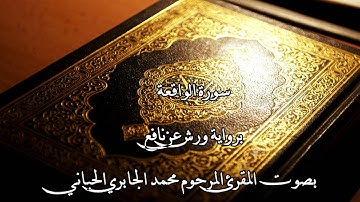 سورة الواقعة
برواية ورش عن نافع
بصوت المقرئ المرحوم محمد الجابري الحياني